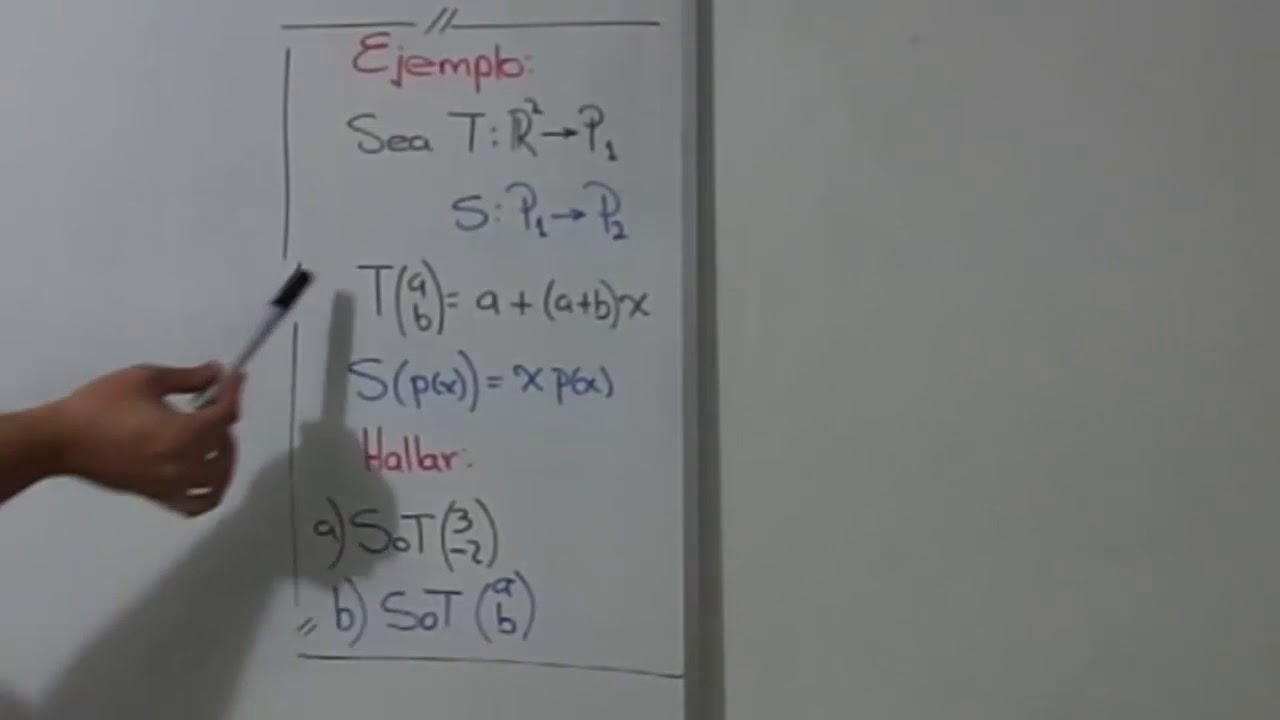 Ejemplo:
Sea T: ℝ² → P₁
S: P₁ → P₂
T(a b) = a + (a+b)x
S(p(x)) = x p(x)
Hallar:
a) SoT(3 -2)
b) SoT(a b)